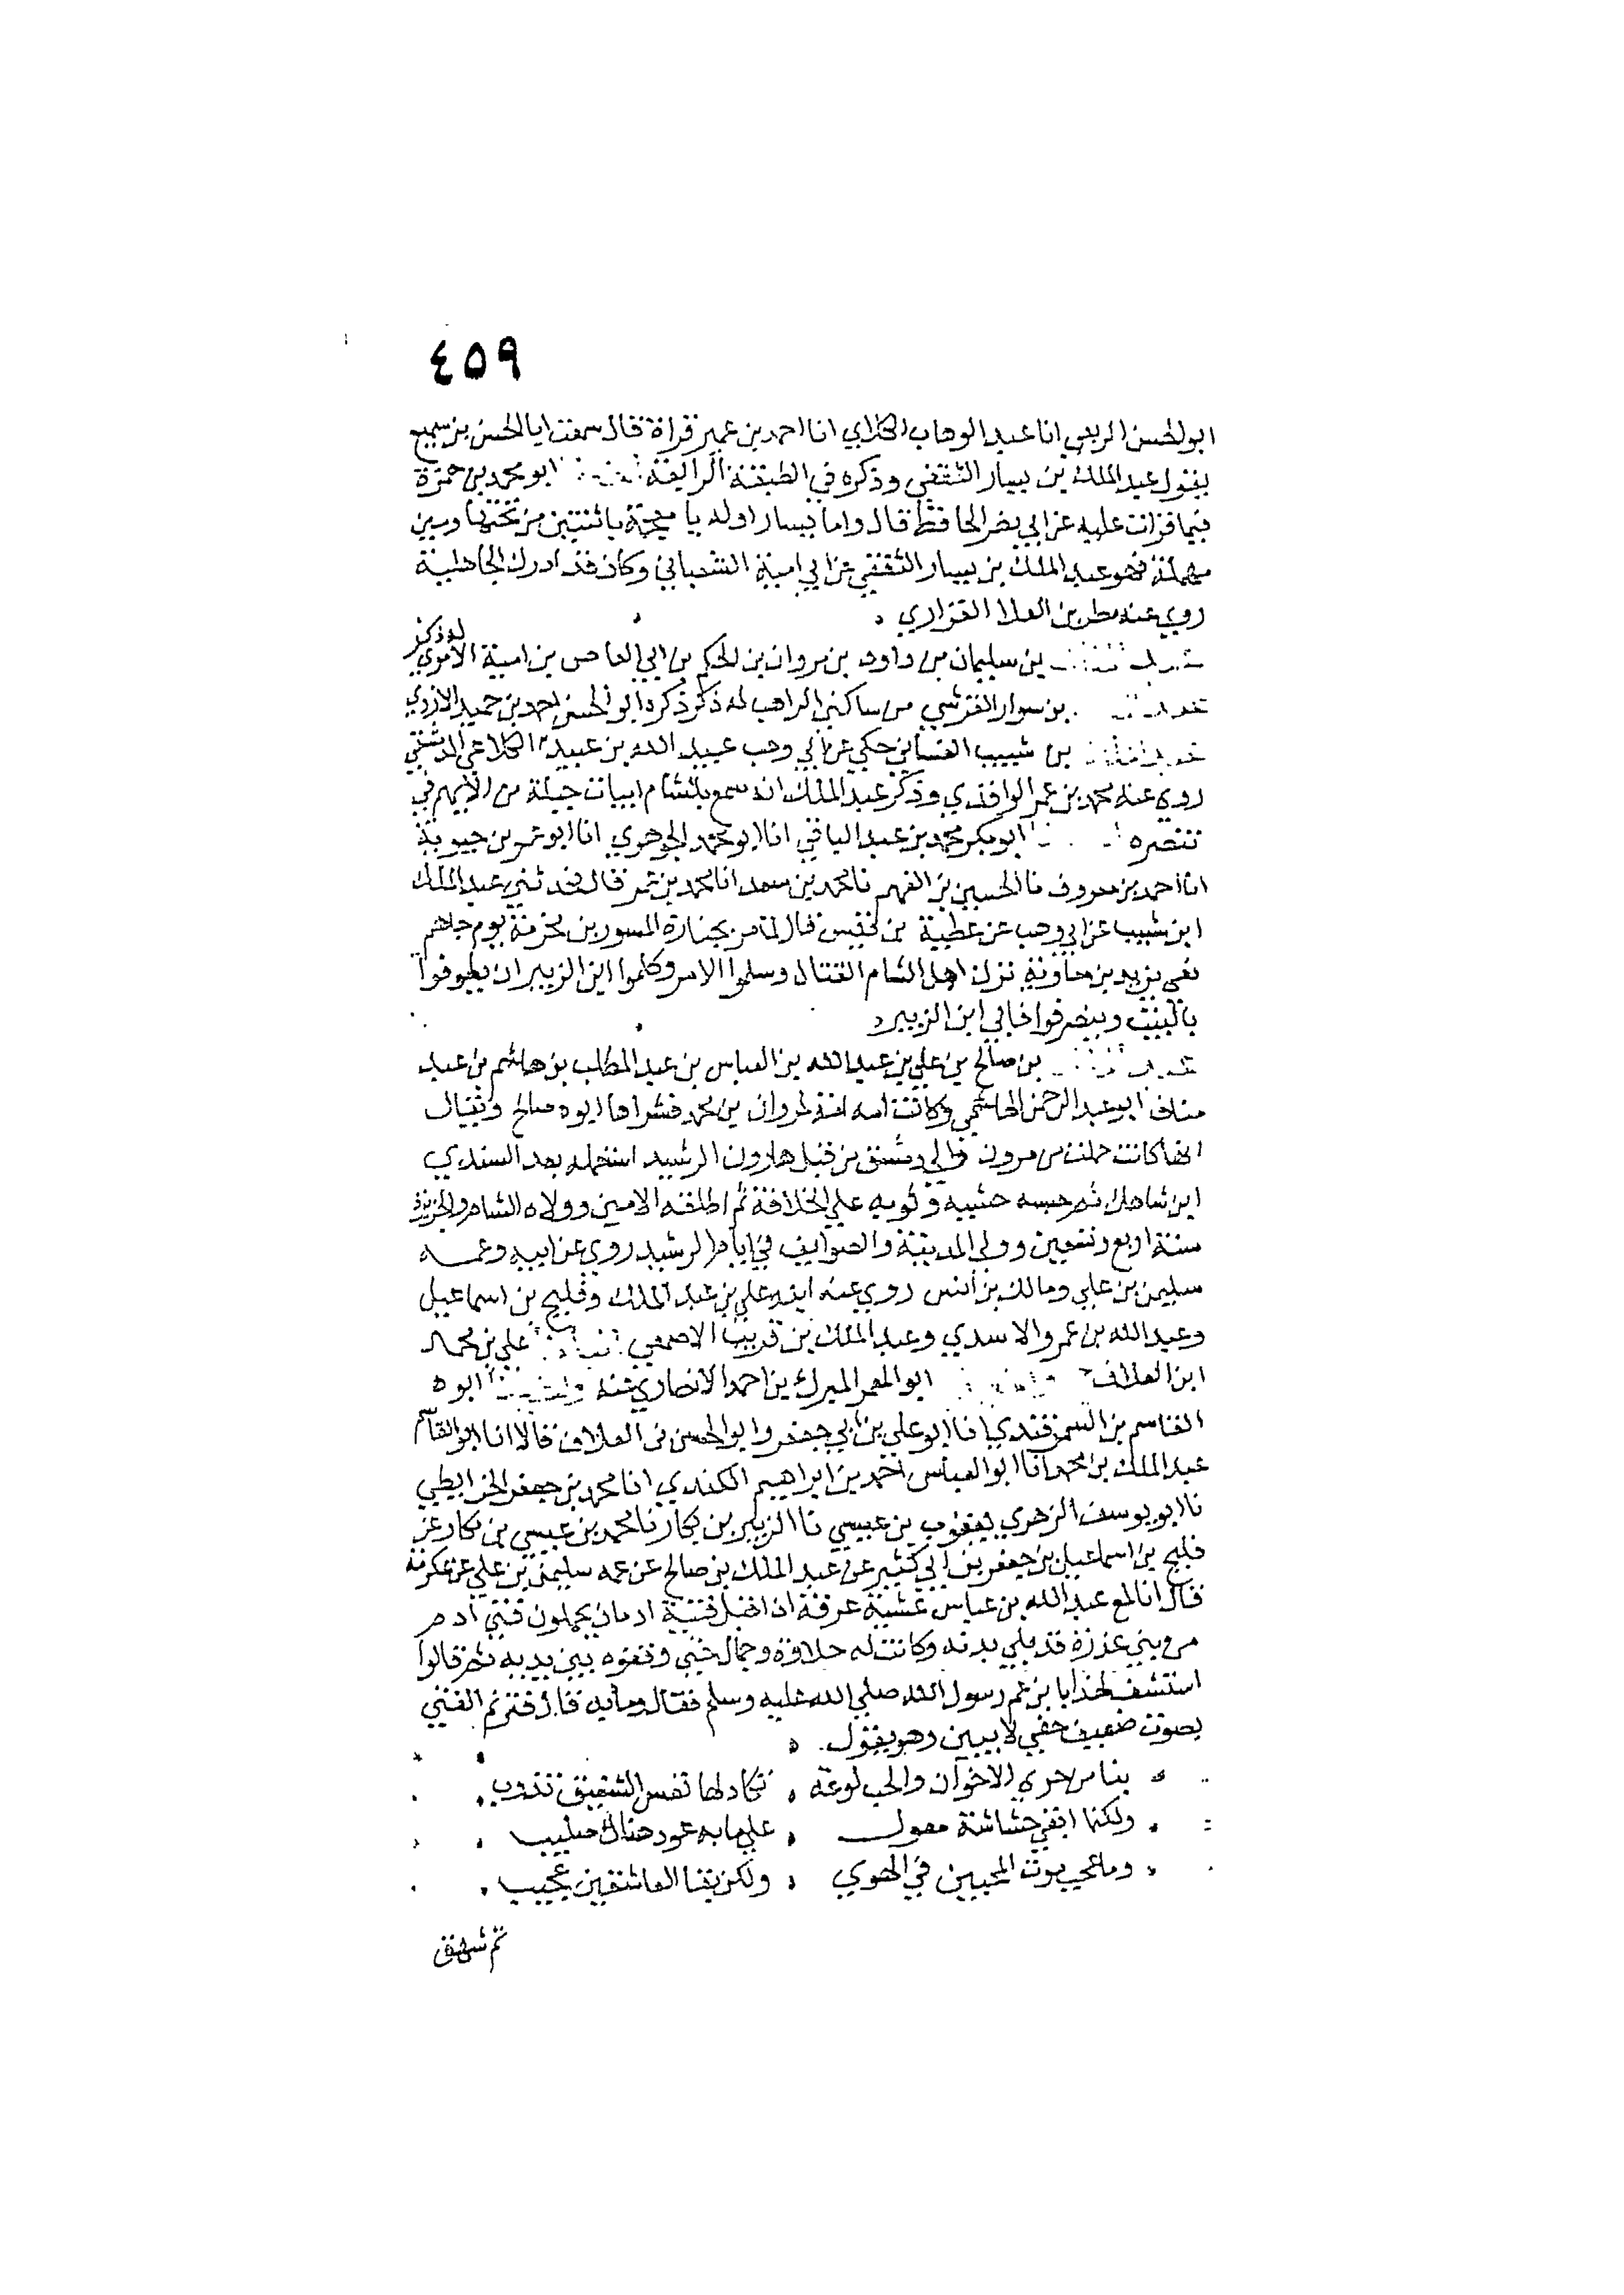 ٤٥٩
ابو الحسن الربعي انا عبد الوهاب الكلابي انا احمد بن عمير قراة قال سمعت ابا الحسن بن سميع
يقول عبد الملك بن يسار الثقفي وذكره في الطبقة الرابعة ابو محمد بن حمزة
فيما قرات عليه عن ابي نصر الحافظ قال واما يسار اوله يا معجمة باثنتين من تحتها وسين
مهملة فهو عبد الملك بن يسار الثقفي عن ابي امية الشعباني وكان قد ادرك الجاهلية
روي عنه مطر بن العلا الفزاري
بن سليمان بن داود بن مروان بن الحكم بن ابي العاص بن امية الاموي له ذكر
بن سوار القرشي من ساكني الراهب له ذكر ذكره ابو الحسن احمد بن حميد الازدي
بن شبيب الغساني حكي عن ابي وهب عبيد الله بن عبيد الكلاعي الدمشقي
روي عنه محمد بن عمر الواقدي وذكر عبد الملك انه سمع بالشام ابيات جبلة بن الايهم في
تنصره ابو بكر محمد بن عبد الباقي انا ابو محمد الجوهري انا ابو عمر بن حيوية
انا احمد بن معروف نا الحسين بن الفهم نا محمد بن سعد انا محمد بن عمر قال فحدثني عبد الملك
ابن شبيب عن ابي وهب عن عطية بن قيس قال لما مر بجنازة المسور بن مخرمة يوم جاهم
نعي يزيد بن معاوية نزل اهل الشام القتال وسلموا الامر وكلموا ابن الزبير ان يطوفوا
بالبيت وينصرفوا فابي ابن الزبير
بن صالح بن علي بن عبد الله بن العباس بن عبد المطلب بن هاشم بن عبد
مناف ابو عبد الرحمن الهاشمي وكانت امه امة لمروان بن محمد فشراها ابوه صالح ويقال
انها كانت حملت من مرون والي دمشق من قبل هارون الرشيد استعمله بعد السندي
ابن شاهك ثم حبسه خشيه وثوبه علي الخلافة ثم اطلقه الامين وولاه الشام والجزيرة
سنة اربع وتسعين وولي المدينة والصوايف في ايام الرشيد روي عن ابيه وعمه
سليمن بن علي ومالك بن أنس روي عنه ابنه علي بن عبد الملك وفليح بن اسماعيل
وعبد الله بن عمرو الاسدي وعبد الملك بن قريب الاصمعي علي بن محمد
ابن العلاف ابو المعمر المبرك بن احمد الانصاري عنه ابو
القاسم بن السمرقندي انا ابو علي بن ابي جعفر وابو الحسن بن العلاف قالا انا ابو القاسم
عبد الملك بن محمد انا ابو العباس احمد بن ابراهيم الكندي انا محمد بن جعفر الخرايطي
نا ابو يوسف الزهري يعقوب بن عيسي نا الزبير بن بكار نا محمد بن عيسي بن بكار عن
فليح بن اسماعيل بن جعفر بن ابي كثير عن عبد الملك بن صالح عن عمه سليمن بن علي عن عكرمة
قال انا لمع عبد الله بن عباس عشية عرفة اذ اقبل فتية ادمان يحملون فتي ادم
من بني عذرة قد بلي بدنه وكانت له حلاوة وجمال حتي وقفوه بين يديه ثم قالوا
استشف لهذا يا بن عم رسول الله صلي الله عليه وسلم فقال وما به قال فترنم الفتي
بصوت ضعيف خفي لا يبين وهو يقول
بنا من جوي الاخوان والحب لوعة تكاد لها نفس الشفيق تذوب
ولكنما ابقي حشاشة معول علي ما به عود هناك صليب
وما عجب موت المحبين في الهوي ولكن بقا العاشقين عجيب
ثم شهق